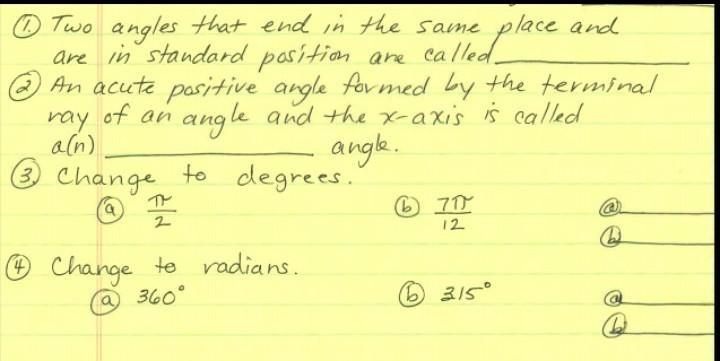 ① Two angles that end in the same place and
are in standard position are called ______
② An acute positive angle formed by the terminal
ray of an angle and the x-axis is called
a(n) ______ angle.
③ Change to degrees.
ⓐ π/2 ⓑ 7π/12 ⓐ ______
ⓑ ______
④ Change to radians.
ⓐ 360° ⓑ 315° ⓐ ______
ⓑ ______